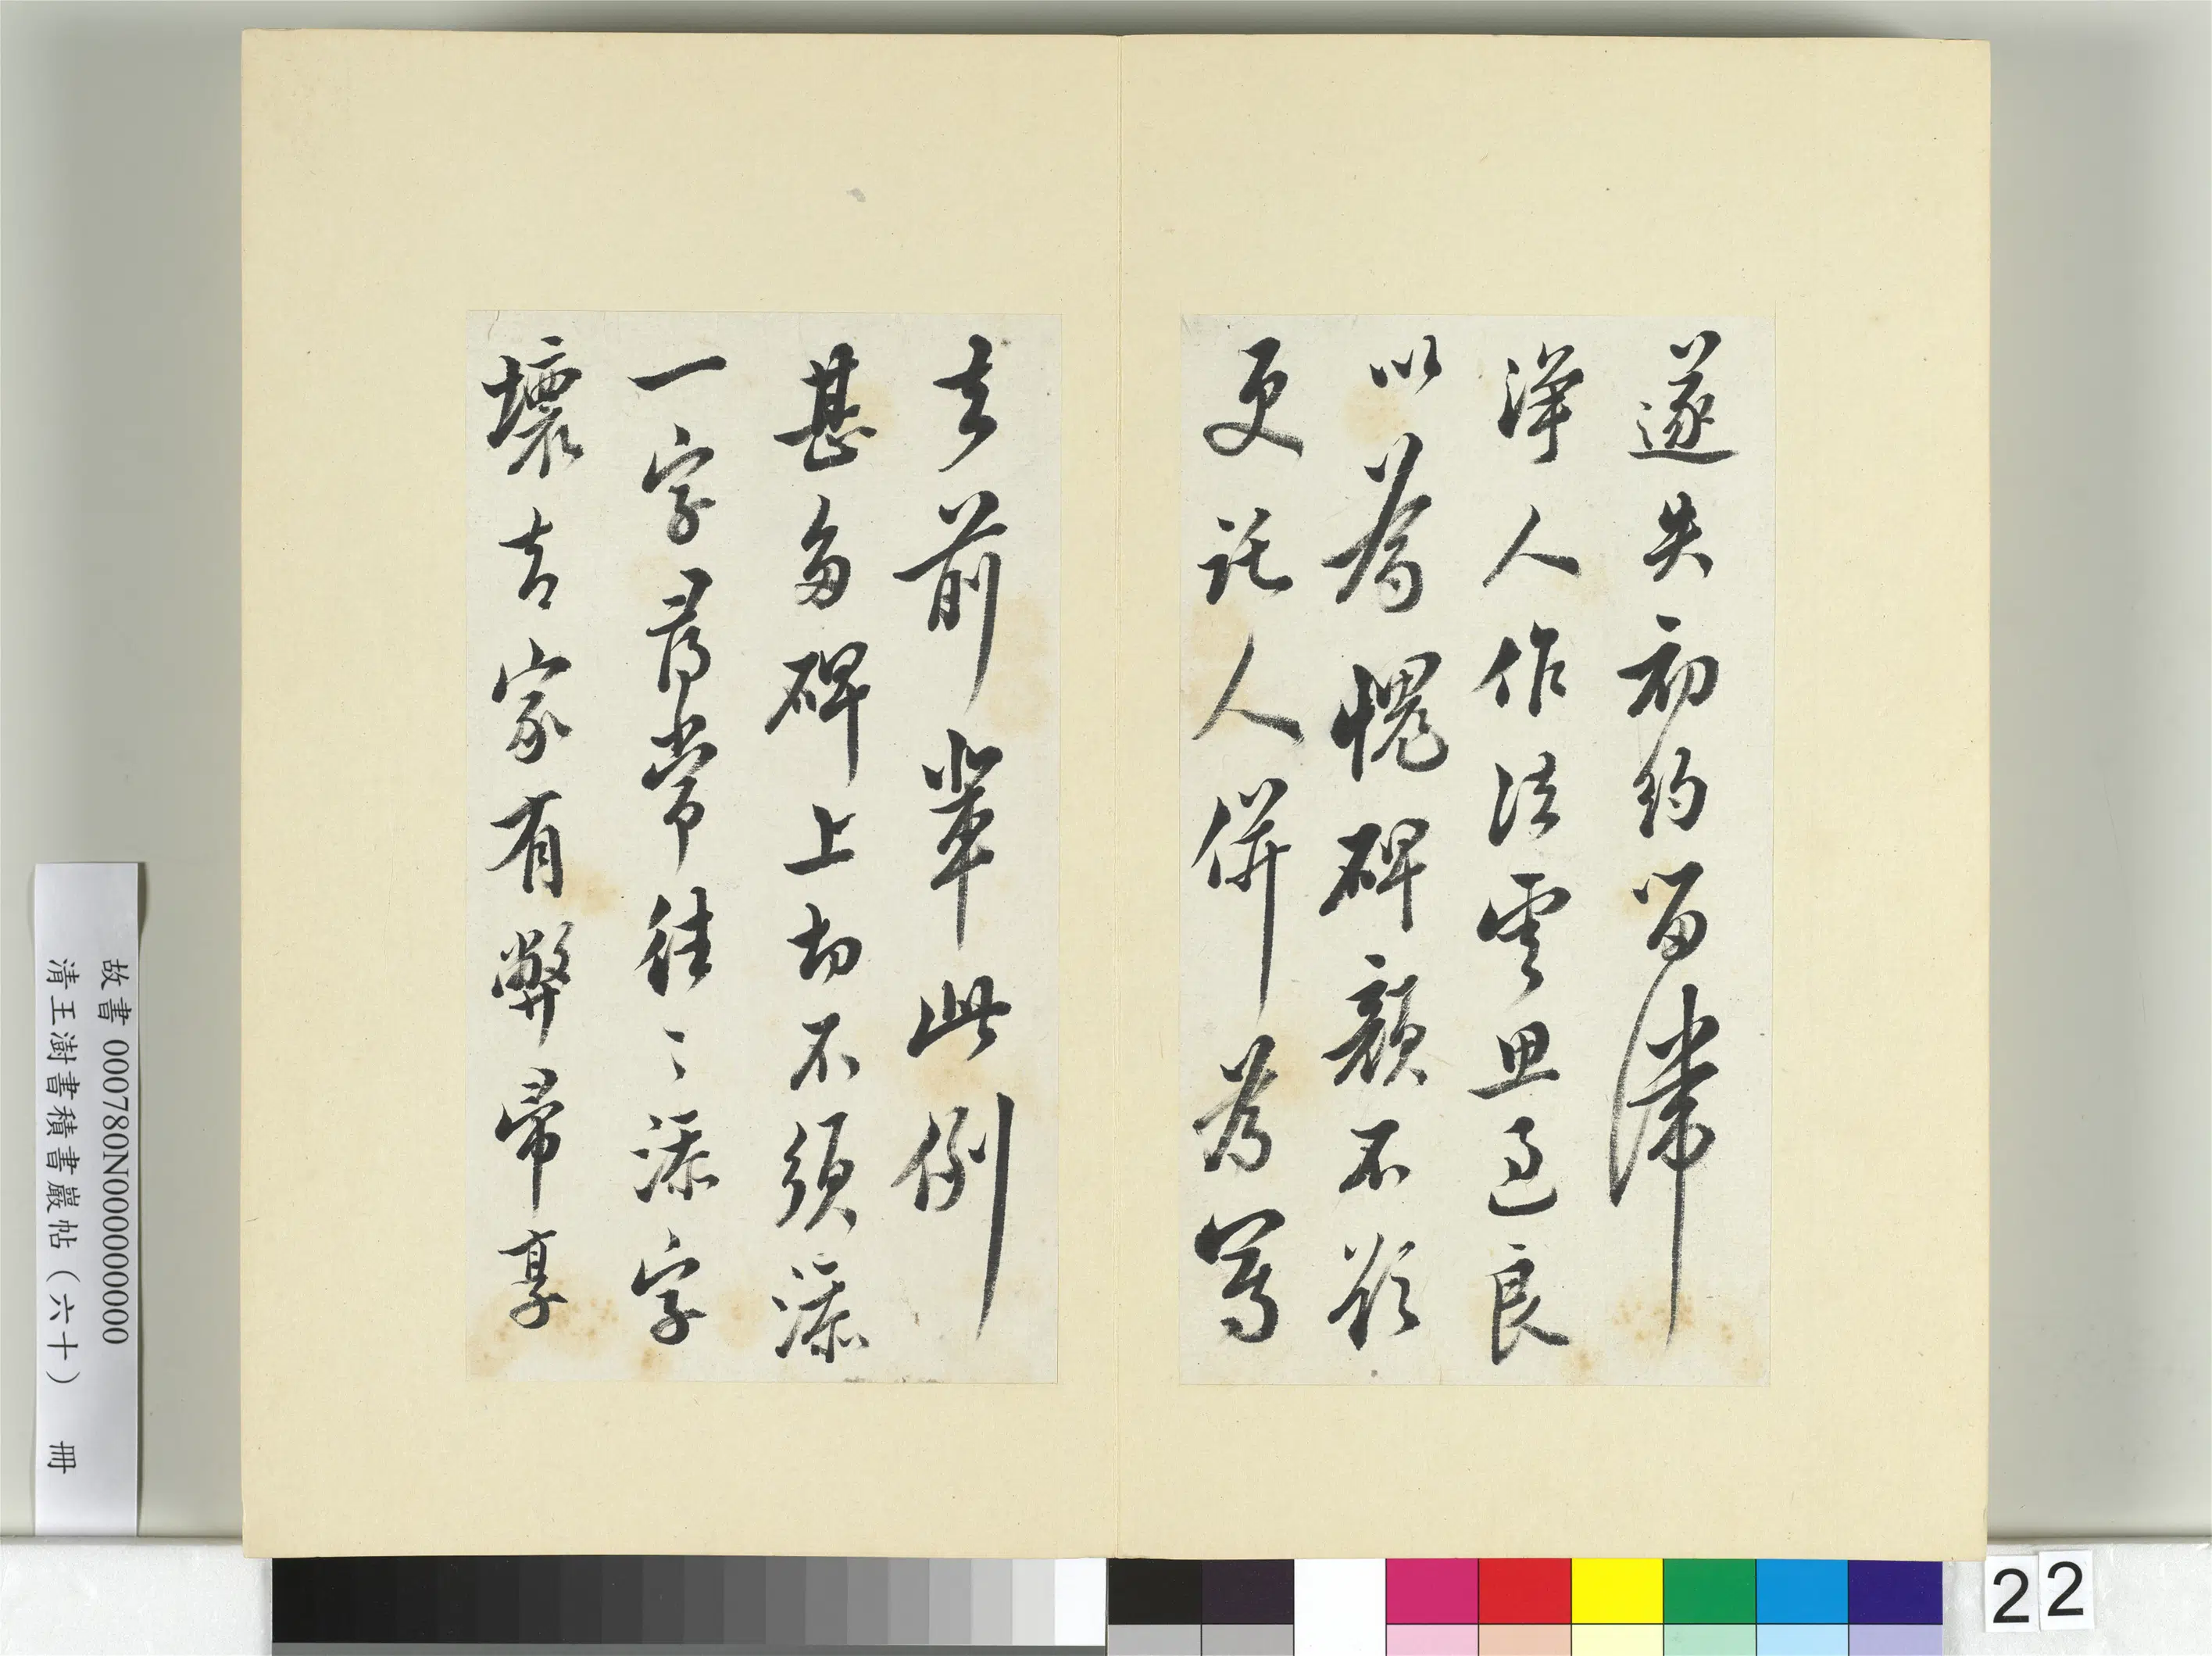 遂失初約留滯
淨人作法雲且過良
以為愧碑額不欲
更託人併為寫
去前輩此例
甚多碑上切不須添
一字尋常往〻添字
壞古家有弊帚享
故書 000780N000000000
清王澍書積書巖帖（六十） 冊
22